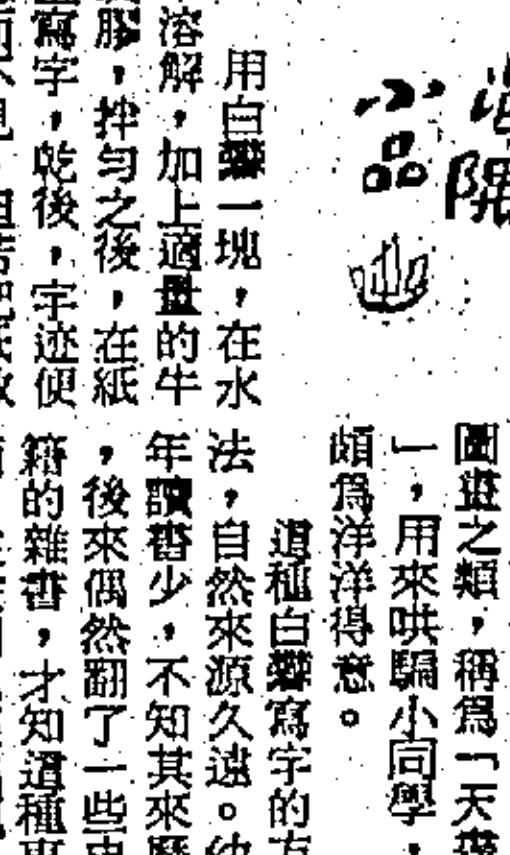 隅
小品
用白礬一塊，在水
溶解，加上適量的牛
膠，拌勻之後，在紙
寫字，乾後，字迹便
圖遊之類，稱爲「天
一，用來哄騙小同學，
頗爲洋洋得意。
這種白礬寫字的方
法，自然來源久遠。幼
年讀書少，不知其來歷
，後來偶然翻了一些史
籍的雜書，才知這種